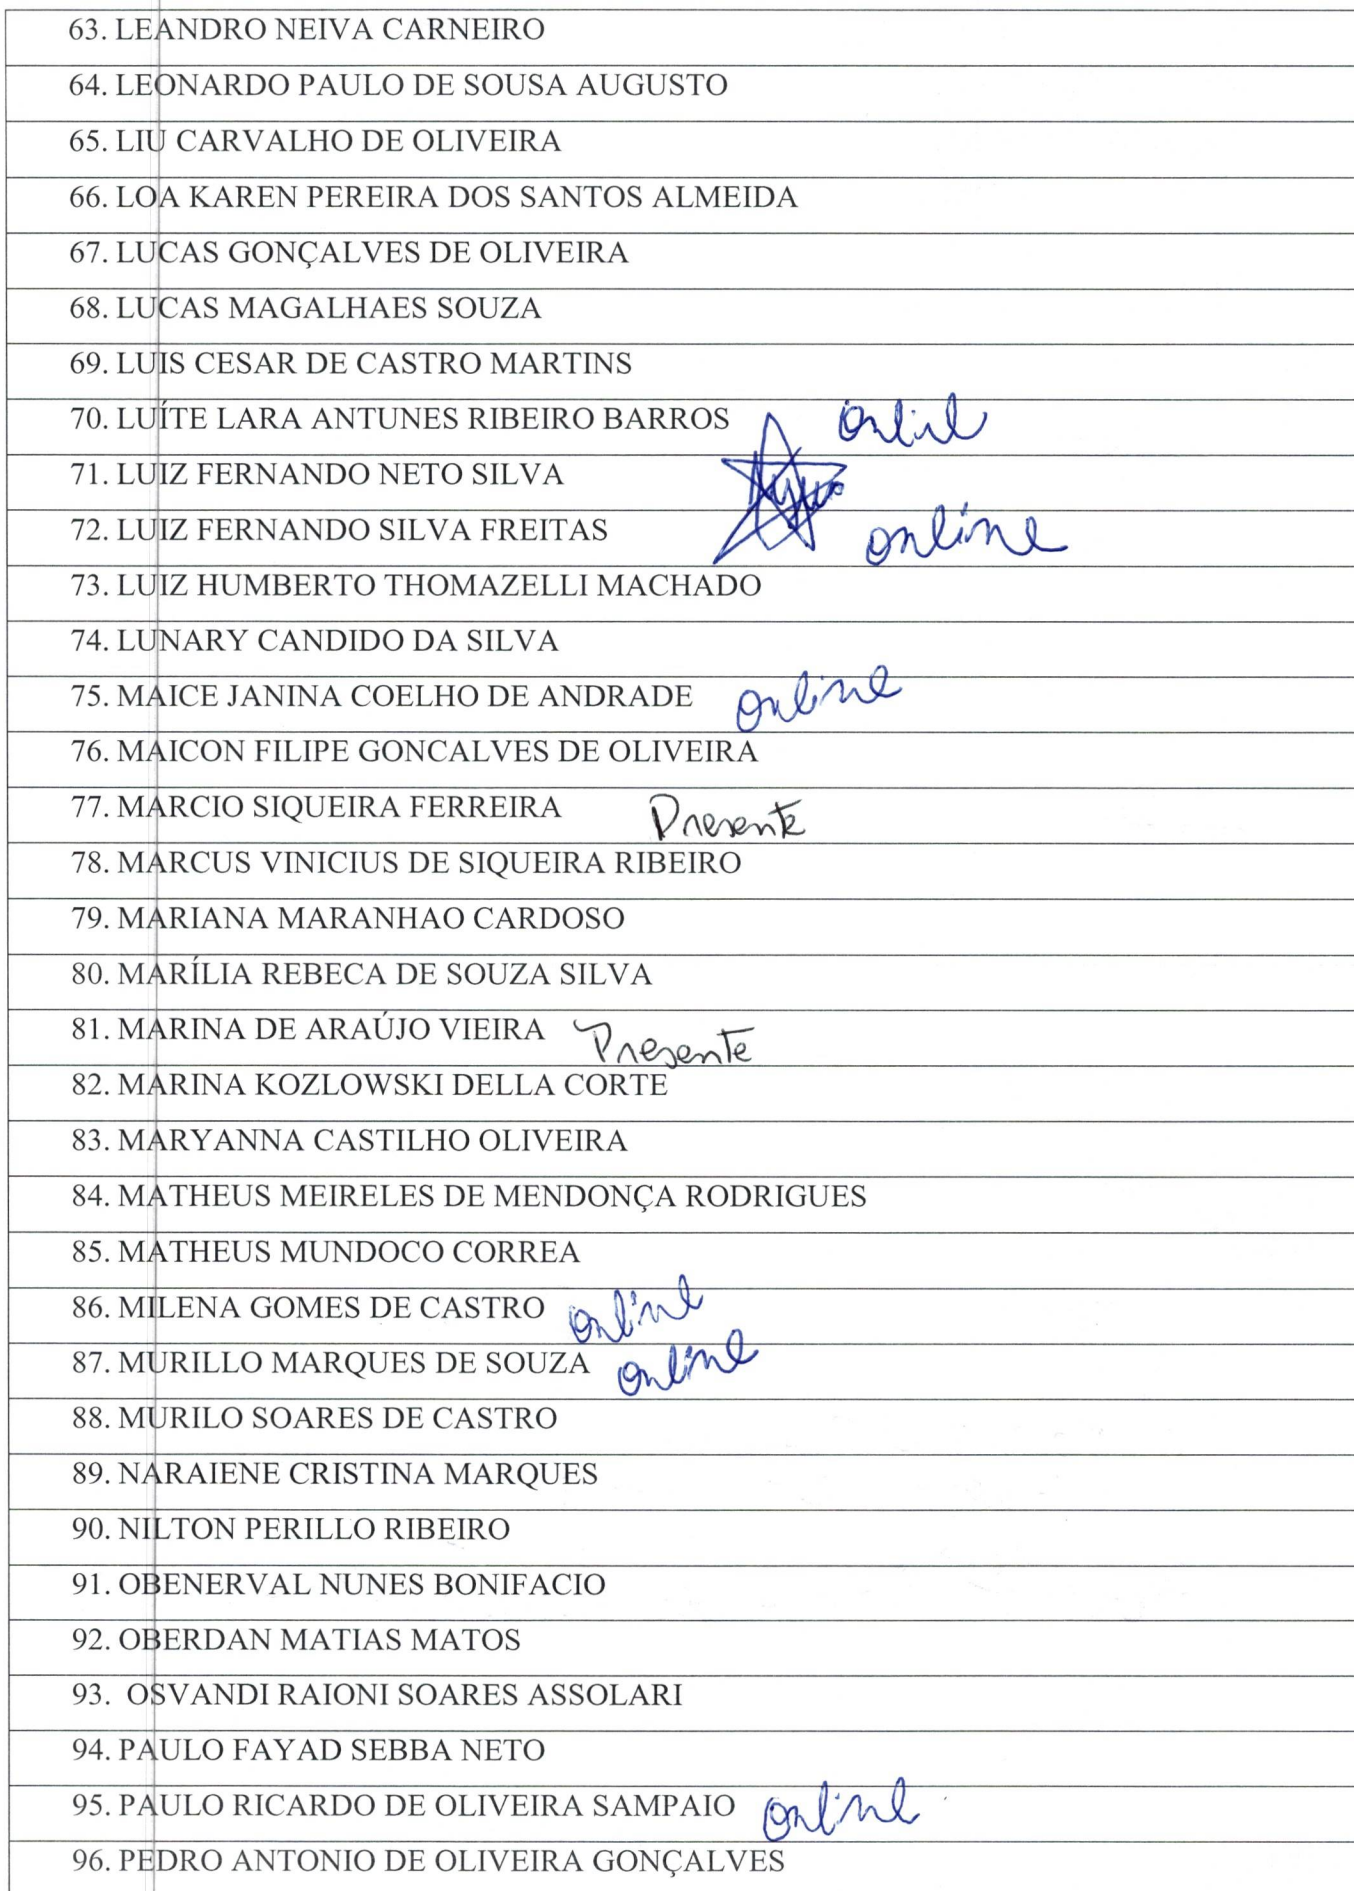 63. LEANDRO NEIVA CARNEIRO
64. LEONARDO PAULO DE SOUSA AUGUSTO
65. LIU CARVALHO DE OLIVEIRA
66. LOA KAREN PEREIRA DOS SANTOS ALMEIDA
67. LUCAS GONÇALVES DE OLIVEIRA
68. LUCAS MAGALHAES SOUZA
69. LUIS CESAR DE CASTRO MARTINS
70. LUÍTE LARA ANTUNES RIBEIRO BARROS online
71. LUIZ FERNANDO NETO SILVA
72. LUIZ FERNANDO SILVA FREITAS online
73. LUIZ HUMBERTO THOMAZELLI MACHADO
74. LUNARY CANDIDO DA SILVA
75. MAICE JANINA COELHO DE ANDRADE online
76. MAICON FILIPE GONCALVES DE OLIVEIRA
77. MARCIO SIQUEIRA FERREIRA Presente
78. MARCUS VINICIUS DE SIQUEIRA RIBEIRO
79. MARIANA MARANHAO CARDOSO
80. MARÍLIA REBECA DE SOUZA SILVA
81. MARINA DE ARAÚJO VIEIRA Presente
82. MARINA KOZLOWSKI DELLA CORTE
83. MARYANNA CASTILHO OLIVEIRA
84. MATHEUS MEIRELES DE MENDONÇA RODRIGUES
85. MATHEUS MUNDOCO CORREA
86. MILENA GOMES DE CASTRO online
87. MURILLO MARQUES DE SOUZA online
88. MURILO SOARES DE CASTRO
89. NARAIENE CRISTINA MARQUES
90. NILTON PERILLO RIBEIRO
91. OBENERVAL NUNES BONIFACIO
92. OBERDAN MATIAS MATOS
93. OSVANDI RAIONI SOARES ASSOLARI
94. PAULO FAYAD SEBBA NETO
95. PAULO RICARDO DE OLIVEIRA SAMPAIO online
96. PEDRO ANTONIO DE OLIVEIRA GONÇALVES